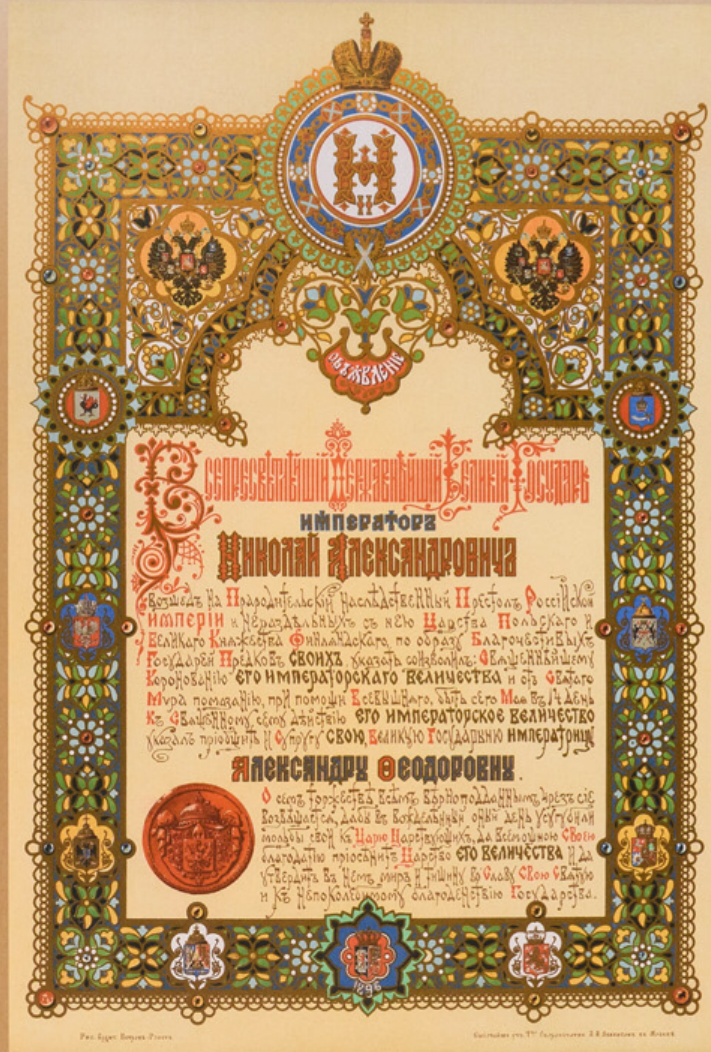 Н II
ОБЪЯВЛЕНІЕ
Всепресвѣтлѣйшій Державнѣйшій Великій Государь
ИМПЕРАТОРЪ
Николай Александровичъ
Возшедъ на Прародительскій наслѣдственный Престолъ Россійской
Имперіи и нераздѣльныхъ съ нею Царства Польскаго и
Великаго Княжества Финляндскаго, по образу Благочестивыхъ
Государей Предковъ СВОИХЪ указать соизволилъ: Священнѣйшему
Коронованію ЕГО ИМПЕРАТОРСКАГО ВЕЛИЧЕСТВА и отъ Святаго
Мѵра помазанію, при помощи Всевышняго, быть сего Мая въ 14 день
Къ Священному сему дѣйствію ЕГО ИМПЕРАТОРСКОЕ ВЕЛИЧЕСТВО
указалъ пріобщить и Супругу СВОЮ, Великую Государыню ИМПЕРАТРИЦУ
АЛЕКСАНДРУ ѲЕОДОРОВНУ.
О семъ торжествѣ всѣмъ вѣрноподданнымъ чрезъ сіе
возвѣщается, дабы въ вожделѣнный оный день усугубили
мольбы свои къ Царю Царствующихъ, да всемощною Своею
благодатію пріосѣнитъ Царство ЕГО ВЕЛИЧЕСТВА и да
утвердитъ въ немъ миръ и тишину во Славу Свою Святую
и къ непоколебимому благоденствію Государства.
1896
Рис. Худож.
въ Москвѣ